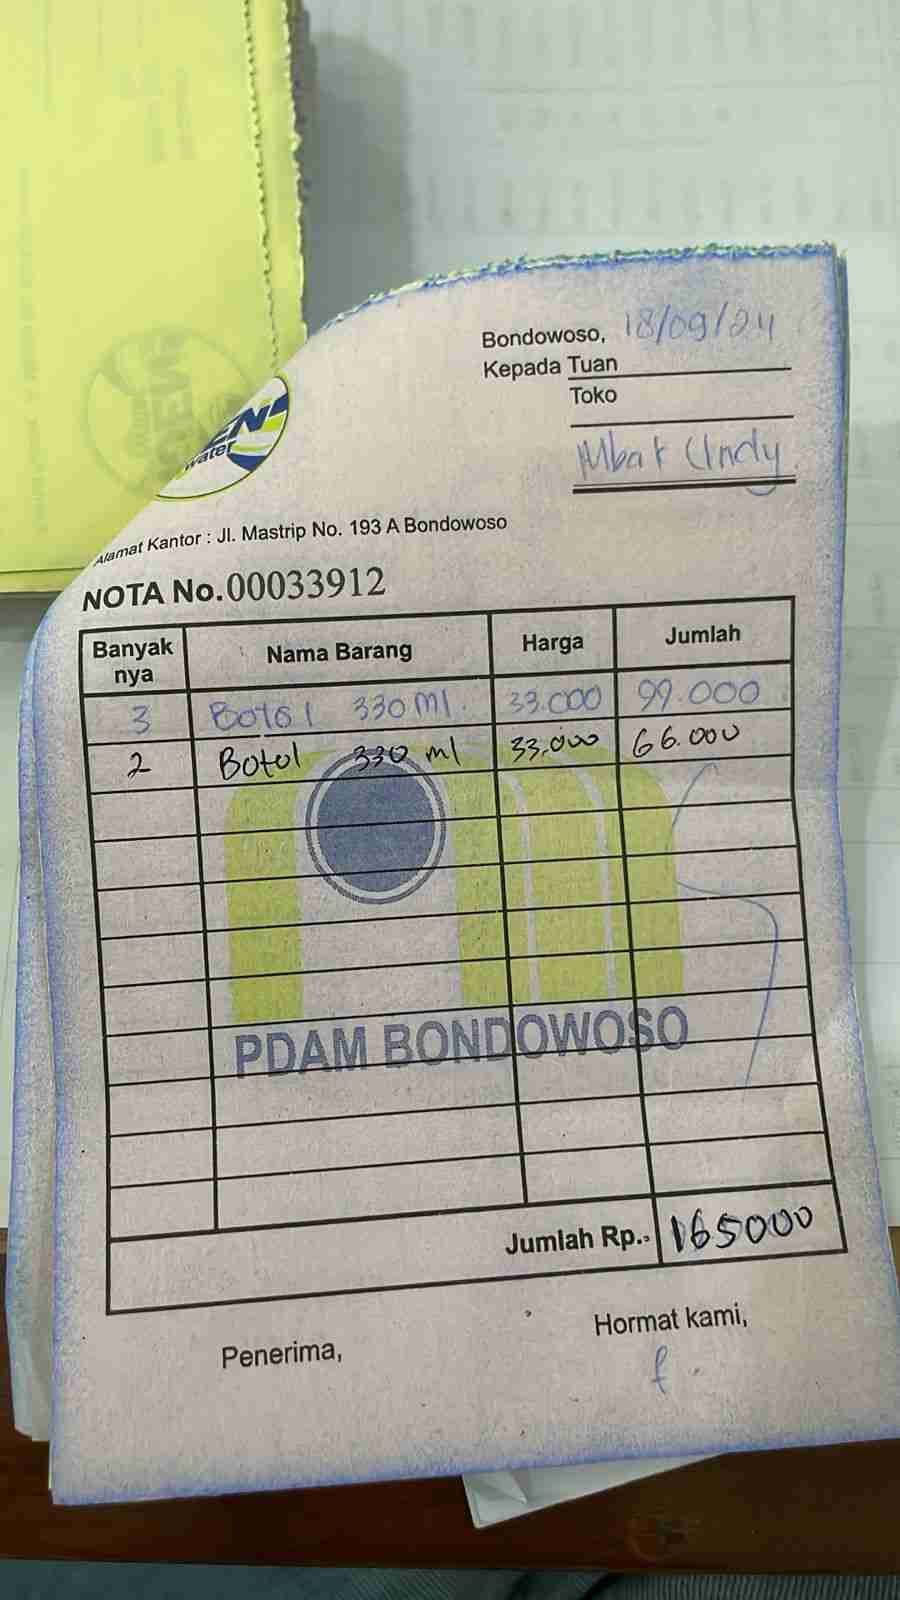 Bondowoso, 18/09/24
Kepada Tuan
Toko
Mbak Cindy
water
Alamat Kantor : Jl. Mastrip No. 193 A Bondowoso
NOTA No.00033912
Banyak nya Nama Barang Harga Jumlah
3 Botol 330 ml. 33.000 99.000
2 Botol 330 ml 33.000 66.000
PDAM BONDOWOSO
Jumlah Rp.. 165000
Penerima, Hormat kami,